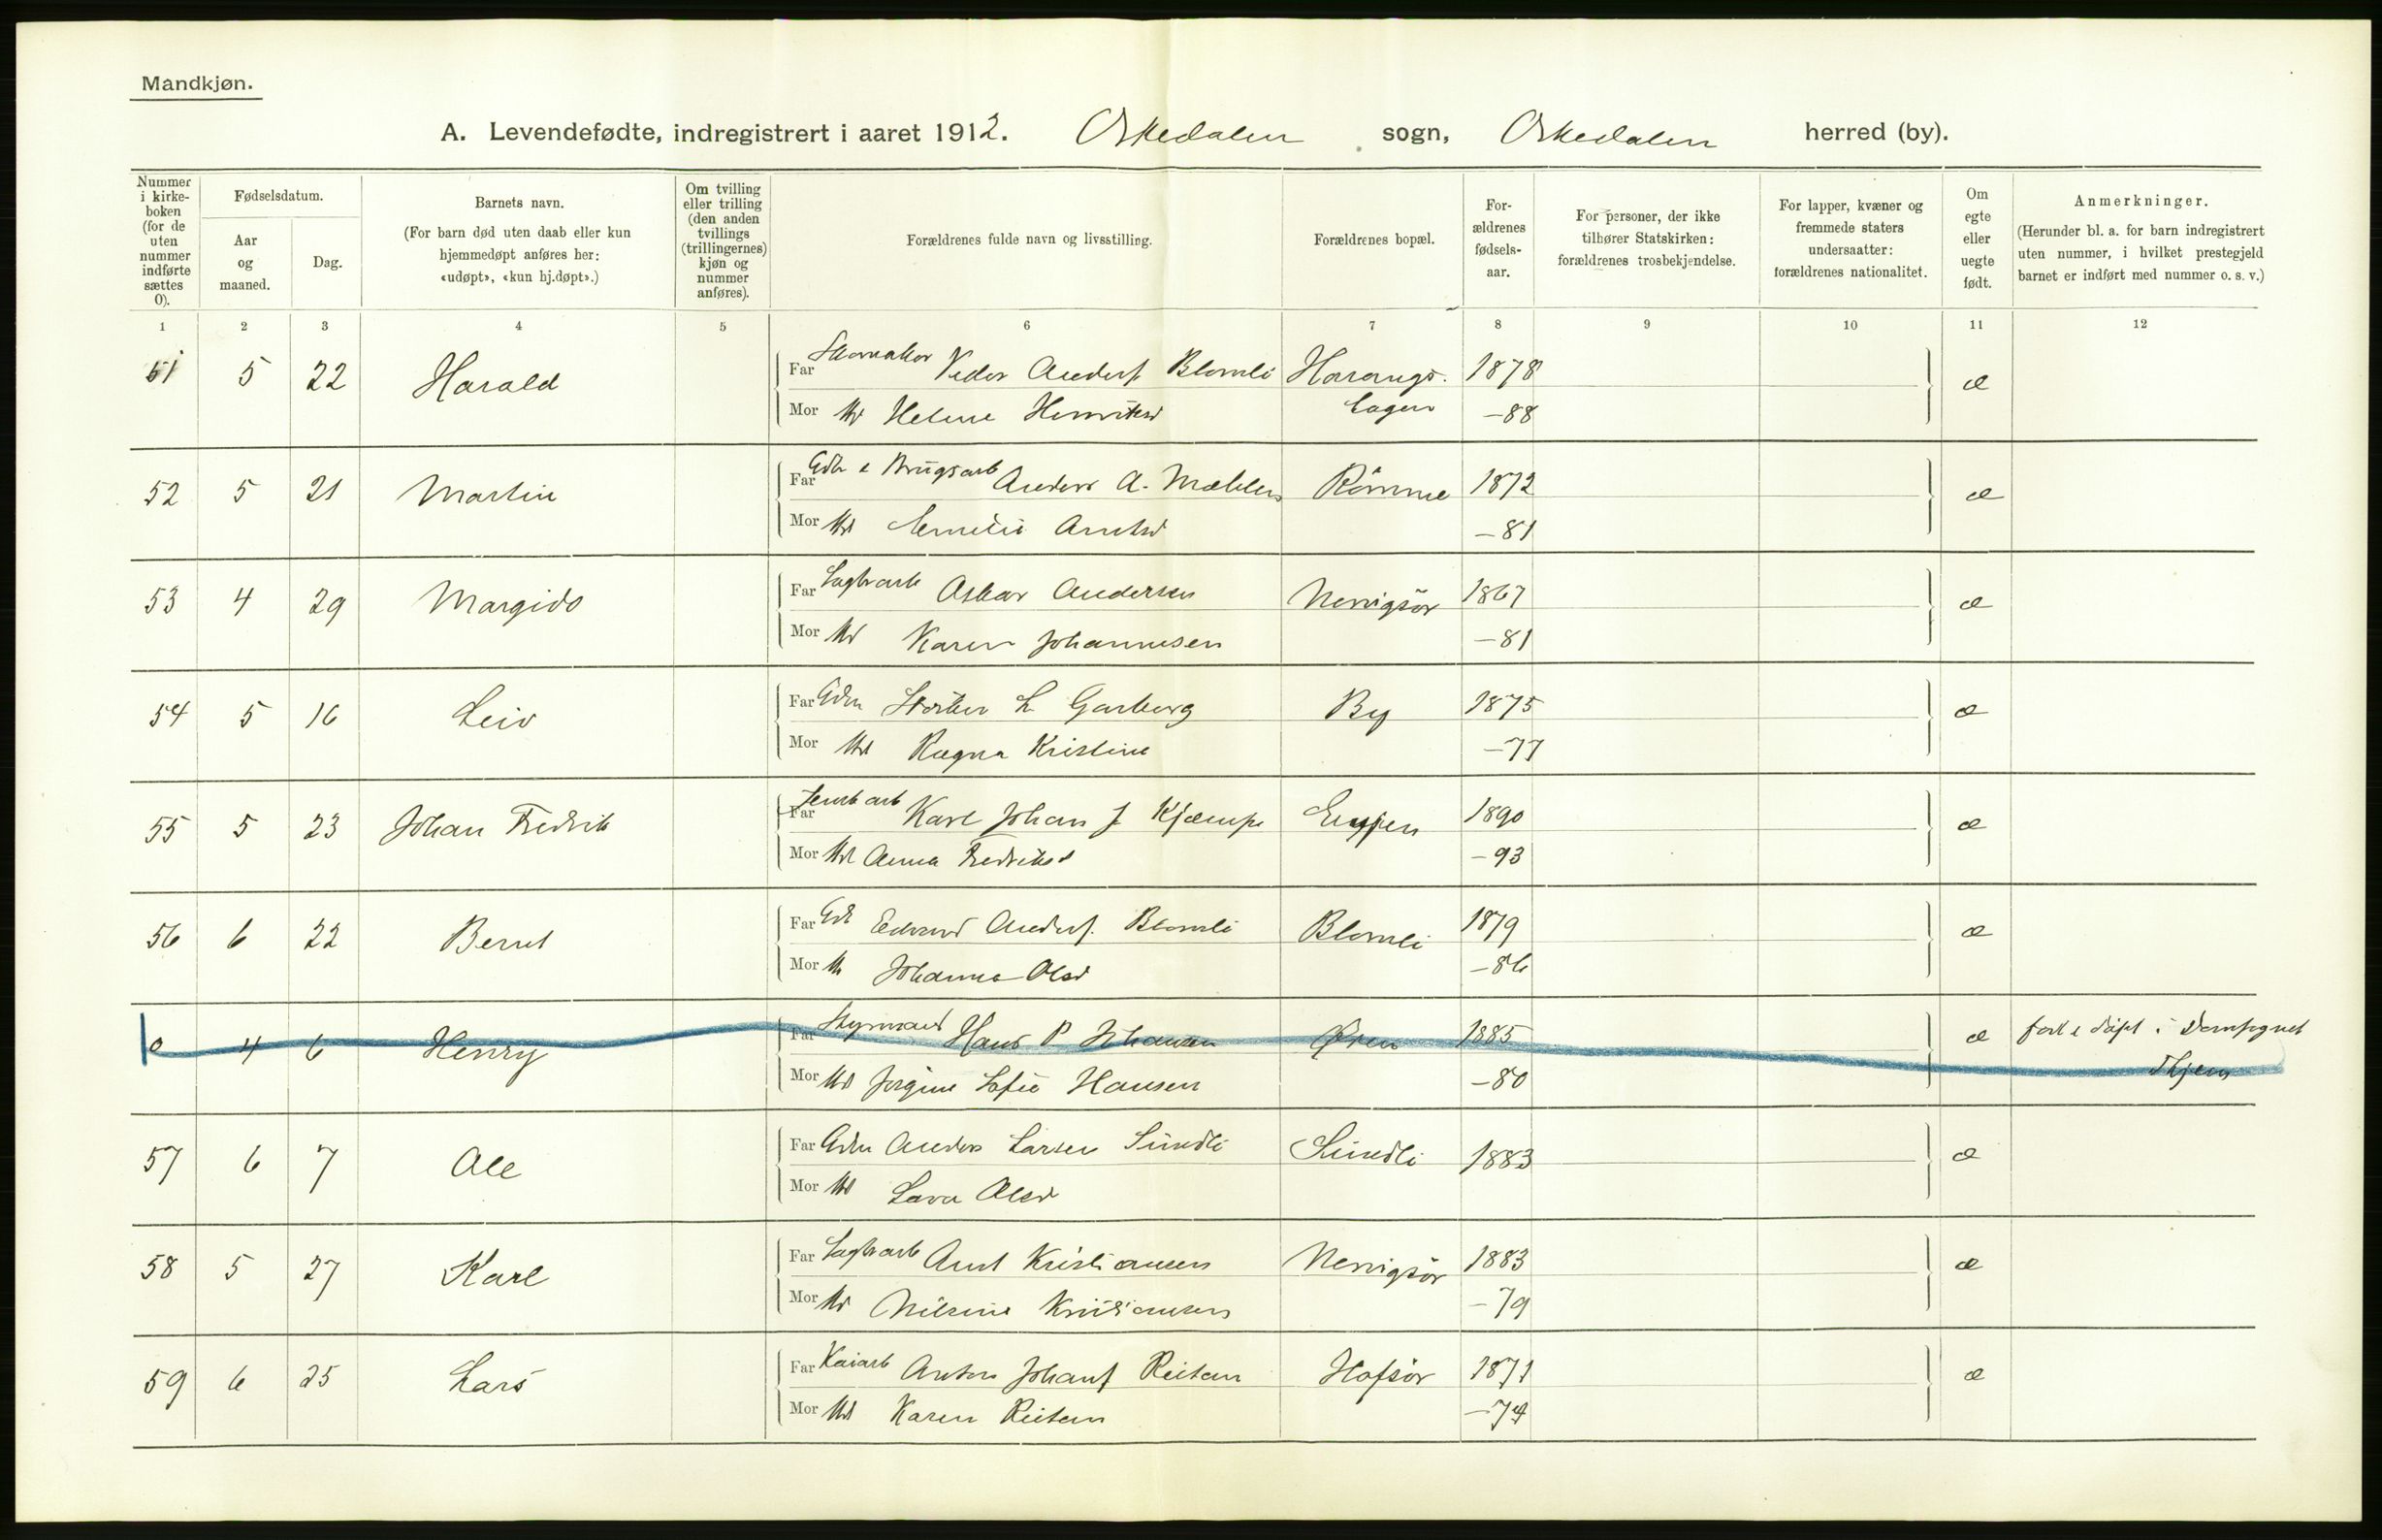 Mandkjøn.
A. Levendefødte, indregistrert i aaret 1912. Orkedalen sogn, Orkedalen herred (by).
Nummer i kirkeboken (for de uten nummer indførte sættes 0).
Fødselsdatum.
Aar og maaned.
Dag.
Barnets navn.
(For barn død uten daab eller kun hjemmedøpt anføres her: «udøpt», «kun hj.døpt».)
Om tvilling eller trilling (den anden tvillings (trillingernes) kjøn og nummer anføres).
Forældrenes fulde navn og livsstilling.
Forældrenes bopæl.
Forældrenes fødselsaar.
For personer, der ikke tilhører Statskirken: forældrenes trosbekjendelse.
For lapper, kvæner og fremmede staters undersaatter: forældrenes nationalitet.
Om egte eller uegte født.
Anmerkninger.
(Herunder bl. a. for barn indregistrert uten nummer, i hvilket prestegjeld barnet er indført med nummer o. s. v.)
1 2 3 4 5 6 7 8 9 10 11 12
51 5 22 Harald Far Skomaker Peder Anders. Blomli 1878 æ
Mor Helene Henriksd -88
52 5 21 Martin Far Gdbr & Brugsarb Anders A. Mæhlen Römme 1872 æ
Mor Emilie Arntsd -81
53 4 29 Margido Far Sagbrarb Oskar Andersen Nervigsör 1867 æ
Mor Karen Johannesen -81
54 5 16 Leiv Far Gdbr L. Garberg By 1875 æ
Mor Ragna Kristine -77
55 5 23 Johan Fredrik Far Jernbarb Karl Johan J Kjæmpe 1890 æ
Mor Anna Fredriksd -93
56 6 22 Bernt Far Edvard Anders. Blomli Blomli 1879 æ
Mor Johanna Olsd -86
0 4 6 Henry Far Styrmand Hans P Johansen Øren 1885 æ født & døpt i Domsognet
Mor Jørgine Sofie Hansen -80 Thjem
57 6 7 Ole Far Gdbr Anders Larsen Sundli Sundli 1883 æ
Mor Lava Olsd
58 5 27 Karl Far Sagbrarb Arnt Kristiansen Nervigsör 1883 æ
Mor Nilsine Kristiansen -79
59 6 25 Lars Far Kaiarb Anton Johans Reitan Hofsör 1871 æ
Mor Karen Reitan -74